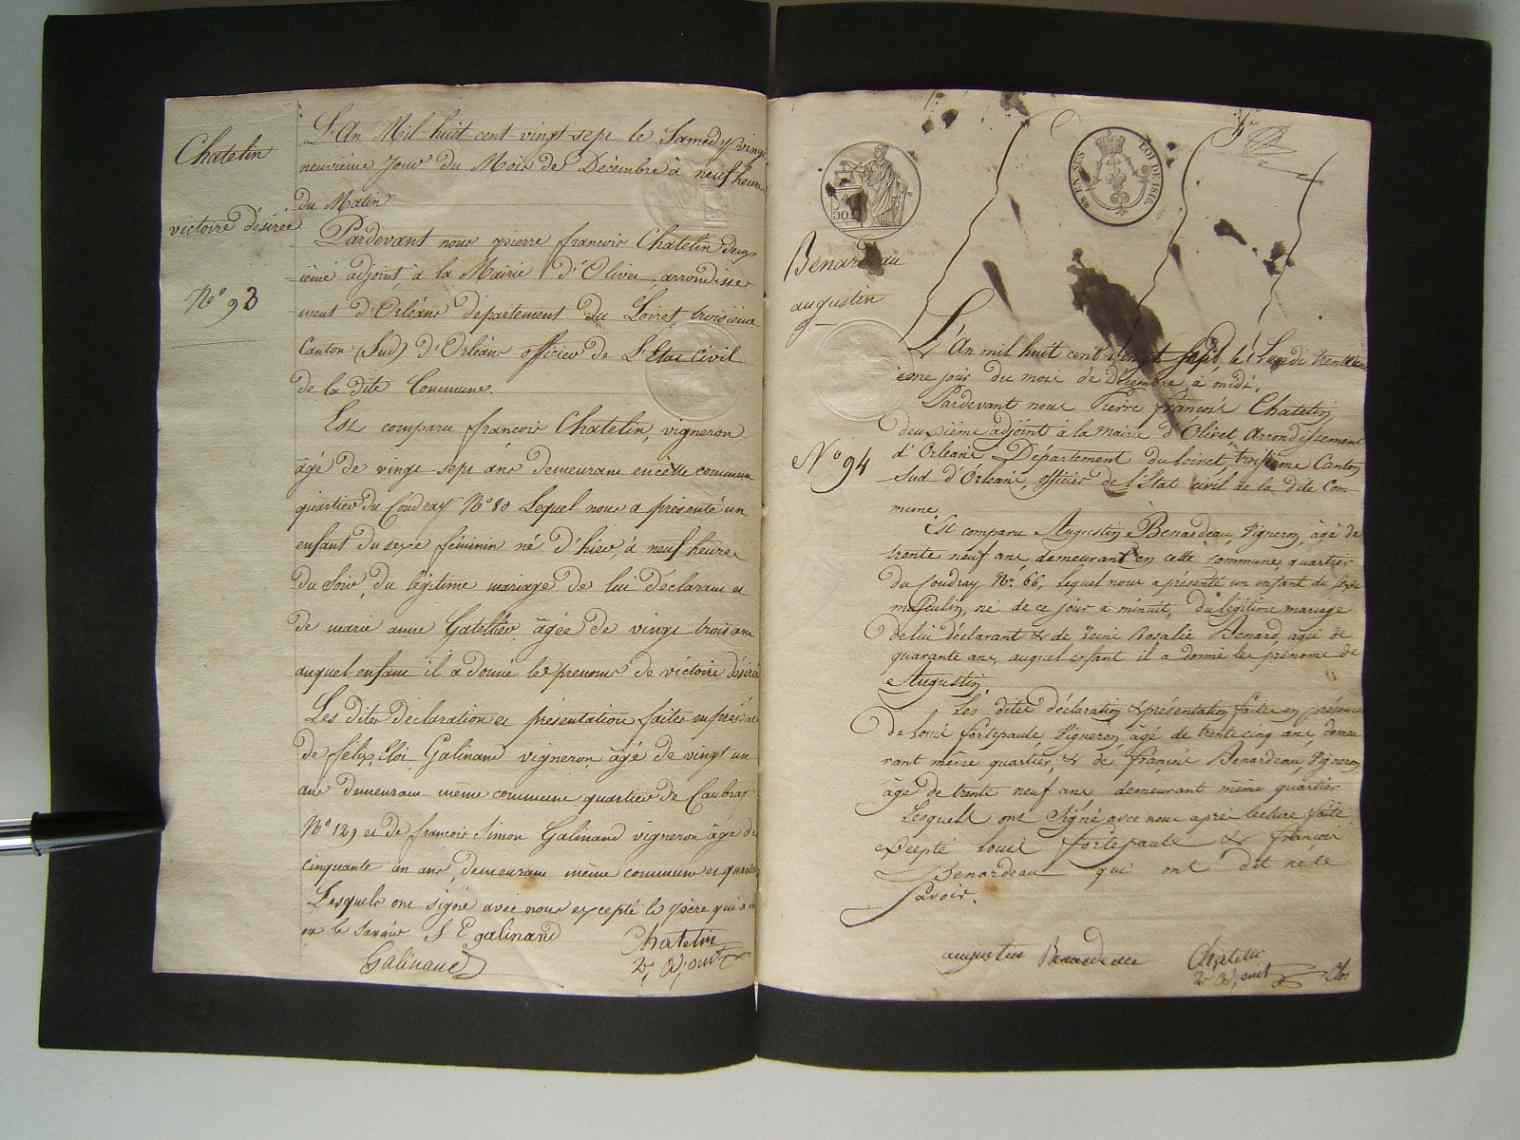 Chatelin
victoire désirée
N.° 93
L'An Mil huit cent vingt sept le Samedy vingt
neuvieme Jour du Mois de Décembre à neuf heures
du Matin
Pardevant nous pierre françois Chatelin deux
ieme adjoint à la Mairie d'Olivet, arrondisse
ment d'Orléans département du Loiret, troisieme
Canton (Sud) d'Orléans officier de L'Etat Civil
de la dite Commune.
Est comparu françois Chatelin, vigneron
âgé de vingt sept ans demeurant en cette commune
quartier du Coudray N° 80 Lequel nous a présenté un
enfant du sexe féminin né d'hier à neuf heures
du soir, du légitime mariage de lui déclarant et
de marie anne Gatellier âgée de vingt trois ans
auquel enfant il a donné les prenoms de victoire désirée
Les dites Déclaration et présentation faites en présence
de felix Eloi Galinand vigneron âgé de vingt un
ans demeurant même commune quartier de
N° 129 et de françois Simon Galinand vigneron âgé de
cinquante un ans, demeurant même commune et quartier
Lesquels ont signé avec nous excepté le père qui
le Savoir f E galinand
Chatelin
Galinand
2e Adjoint
30
LOI DE 1816
Benardeau
augustin
N° 94
L'An mil huit cent vingt sept, le Lundi trente un
ieme jour du mois de décembre, à midi.
Pardevant nous Pierre françois Chatelin
deuxième adjoint à la mairie d'Olivet, Arrondissement
d'Orléans, Département du loiret, troisieme Canton
Sud d'Orléans, officier de l'état civil de la dite Com
mune.
Est comparu Augustin Benardeau, Vigneron, âgé de
trente neuf ans, demeurant en cette commune, quartier
du Coudray N°. 66, lequel nous a présenté un enfant du sexe
masculin, né de ce jour à minuit, du légitime mariage
de lui déclarant & de Reine Rosalie Benard, agée de
quarante ans, auquel enfant il a donné les prénoms de
Augustin.
Les dites déclaration & présentation faites en présence
de Louis fortepaule Vigneron, âgé de trente cinq ans, demeu
rant même quartier, & de françois Benardeau, Vigneron
âgé de trente neuf ans, demeurant même quartier
Lesquels ont Signé avec nous après lecture faite
Excepté Louis fortepaule & françois
Benardeau qui ont dit ne le
Savoir.
augustin Benardeau
Chatelin
2e Adjoint